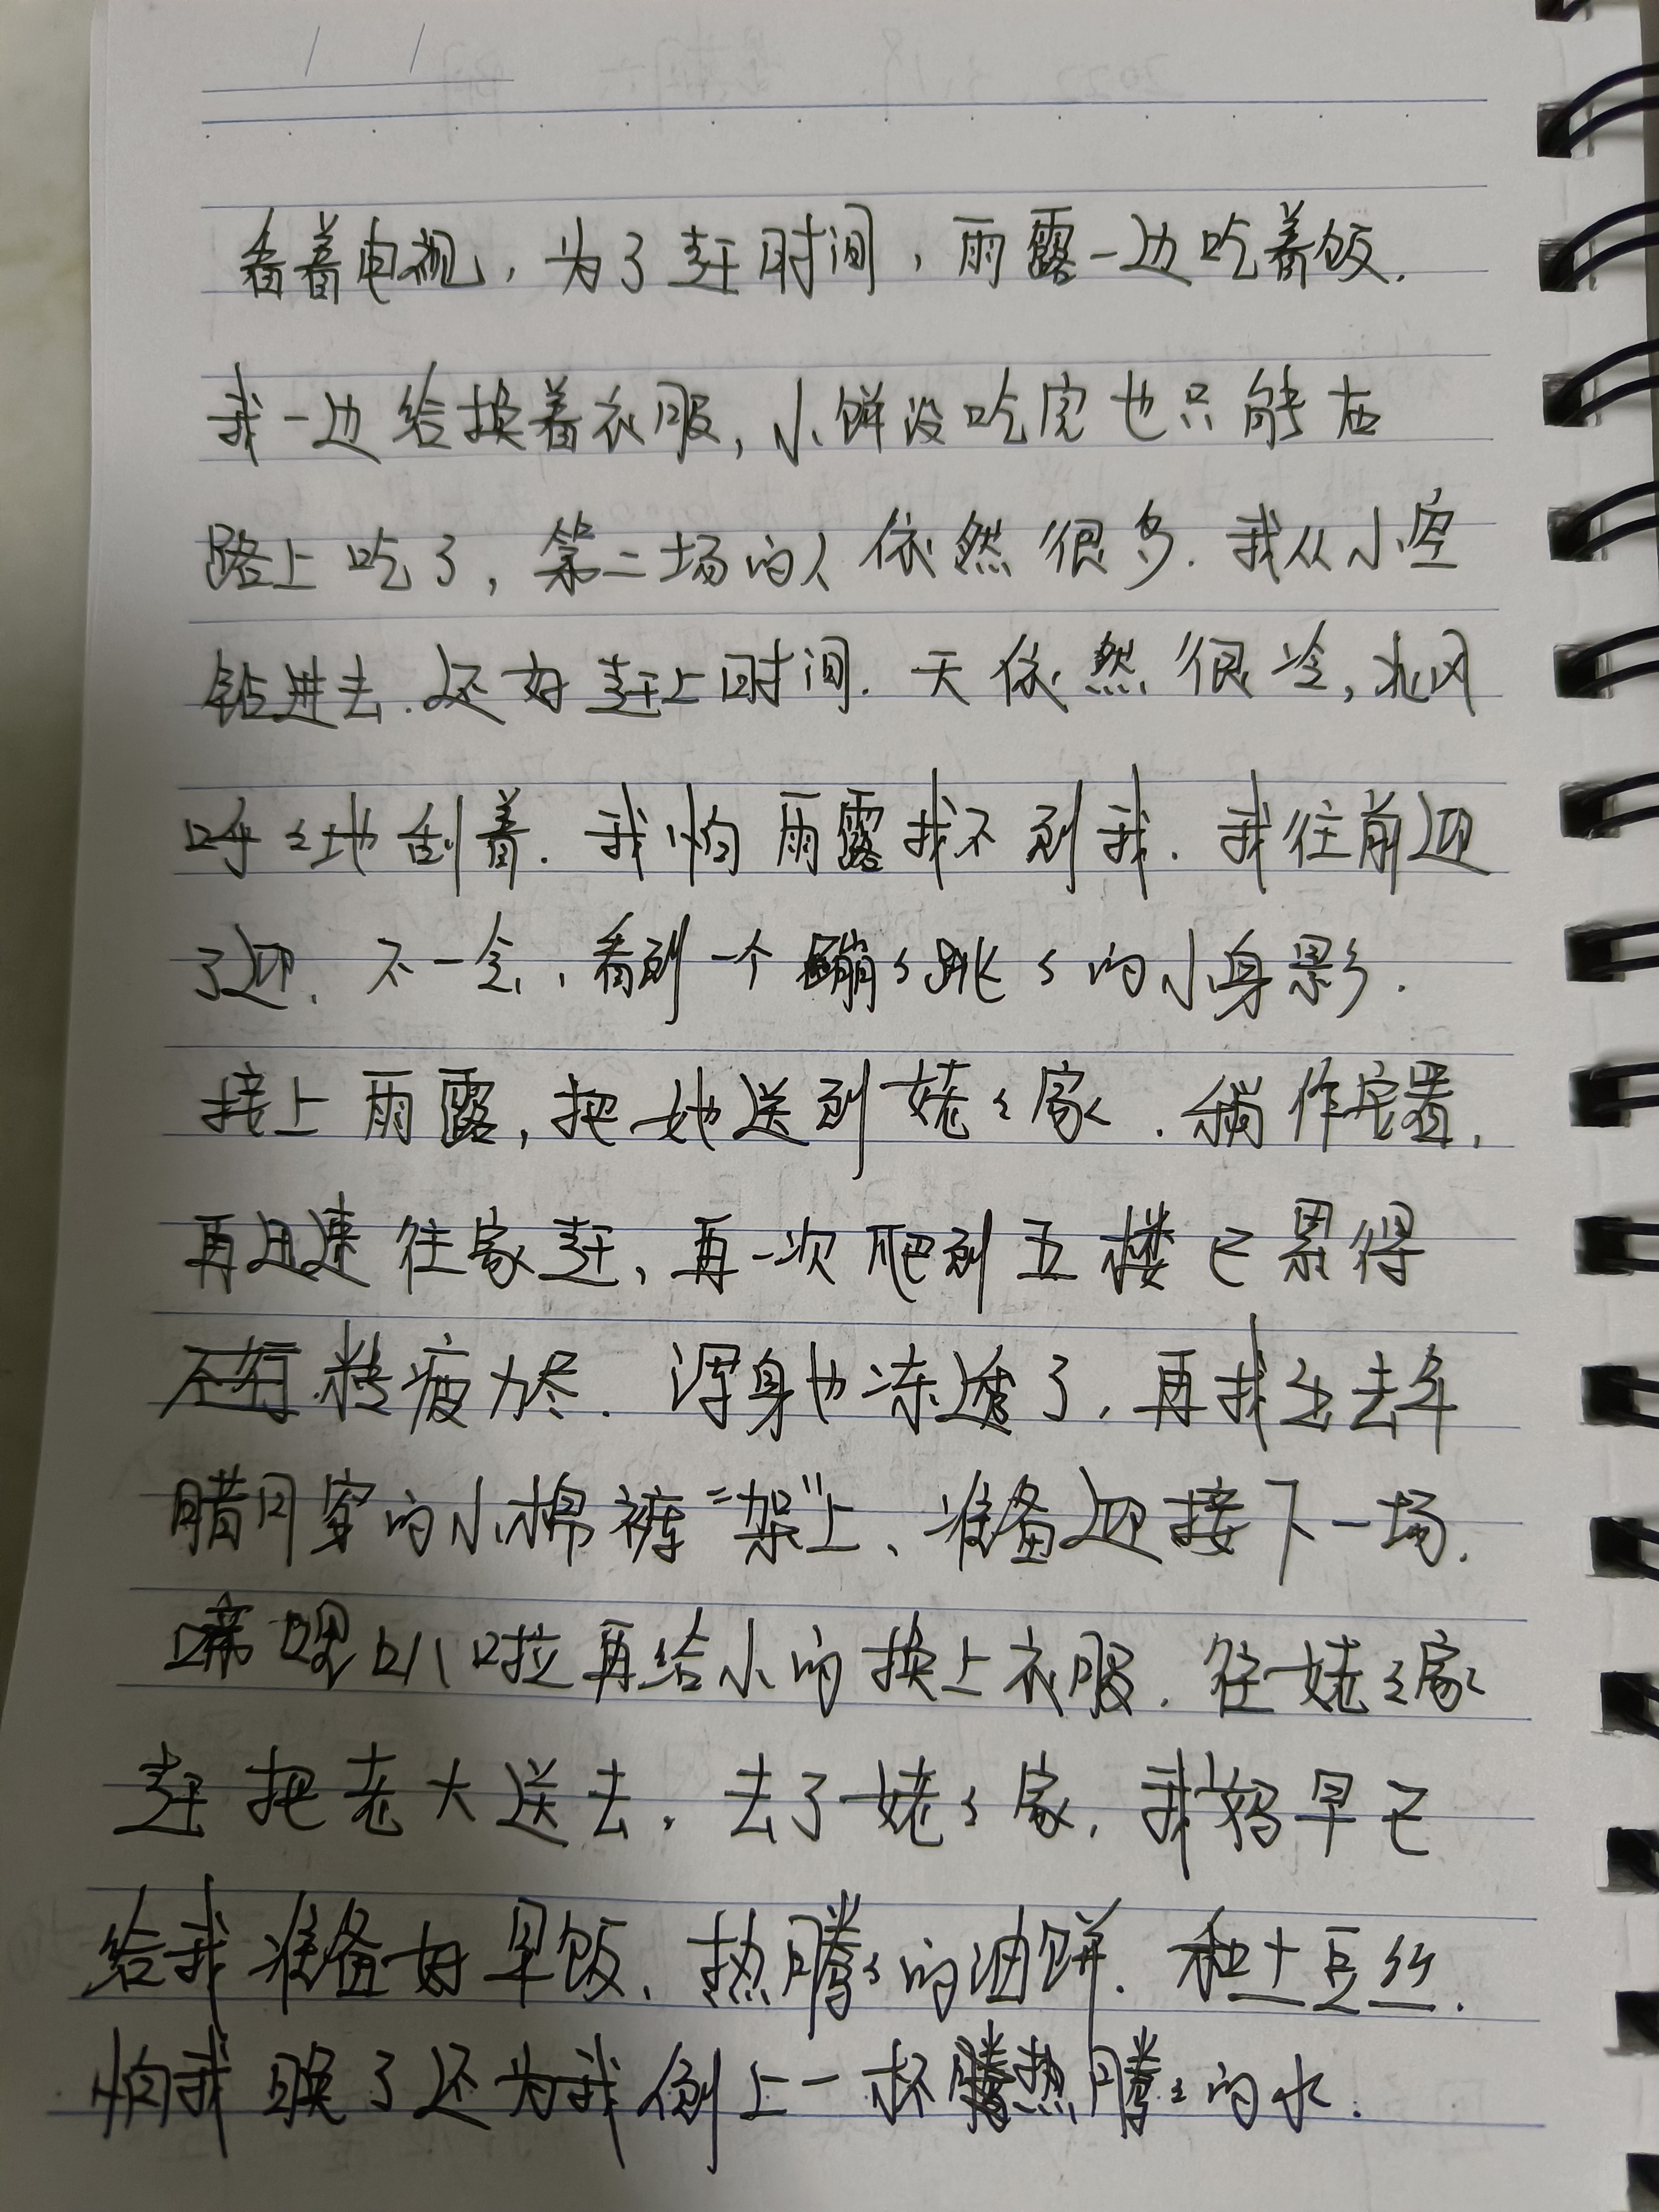 看着电视，为了赶时间，雨露一边吃着饭.
我一边给换着衣服，小饼没吃完也只能在
路上吃了，第二场的人依然很多.我从小空
钻进去.还好赶上时间.天依然很冷，北风
呼々地刮着.我怕雨露找不到我.我往前迎
了迎.不一会，看到一个蹦々跳々的小身影.
接上雨露，把她送到姥々家.稍作安置，
再迅速往家赶，再一次爬到五楼已累得
精疲力尽.浑身也冻透了，再找出去年
腊月穿的小棉裤“架”上、准备迎接下一场.
唏哩叭啦再给小的换上衣服.往姥々家
赶把老大送去，去了姥々家，我妈早已
给我准备好早饭，热腾々的油饼.和土豆丝.
怕我晚了还为我倒上一杯热腾々的水.